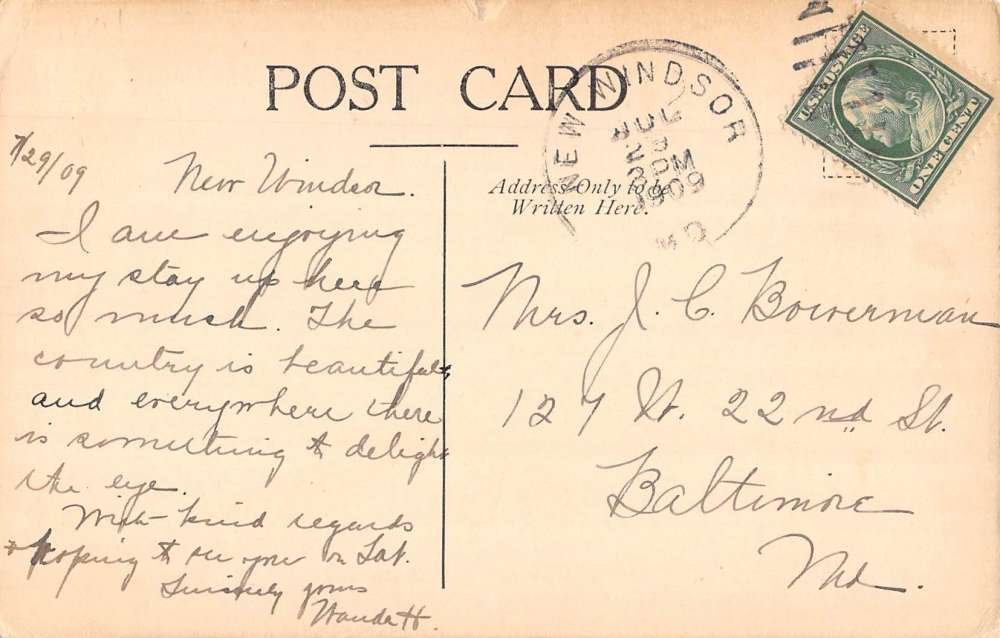 POST CARD
NEW WINDSOR
JUL
29
1909
MD
U.S. POSTAGE
ONE CENT
Address Only to be
Written Here.
7/29/09
New Windsor.
I am enjoying
my stay up here
so much. The
country is beautiful,
and everywhere there
is something to delight
the eye.
With kind regards
& hoping to see you on Sat.
Sincerely yours
H.
Mrs. J. C. Bowerman
127 W. 22nd St.
Baltimore
Md.